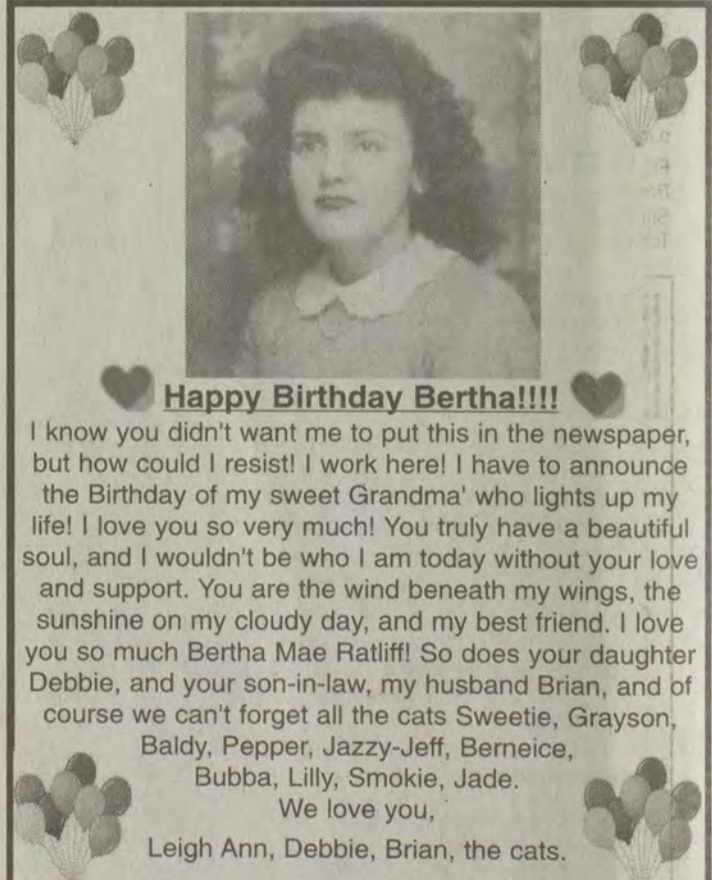 Happy Birthday Bertha!!!!
I know you didn't want me to put this in the newspaper,
but how could I resist! I work here! I have to announce
the Birthday of my sweet Grandma' who lights up my
life! I love you so very much! You truly have a beautiful
soul, and I wouldn't be who I am today without your love
and support. You are the wind beneath my wings, the
sunshine on my cloudy day, and my best friend. I love
you so much Bertha Mae Ratliff! So does your daughter
Debbie, and your son-in-law, my husband Brian, and of
course we can't forget all the cats Sweetie, Grayson,
Baldy, Pepper, Jazzy-Jeff, Berneice,
Bubba, Lilly, Smokie, Jade.
We love you,
Leigh Ann, Debbie, Brian, the cats.